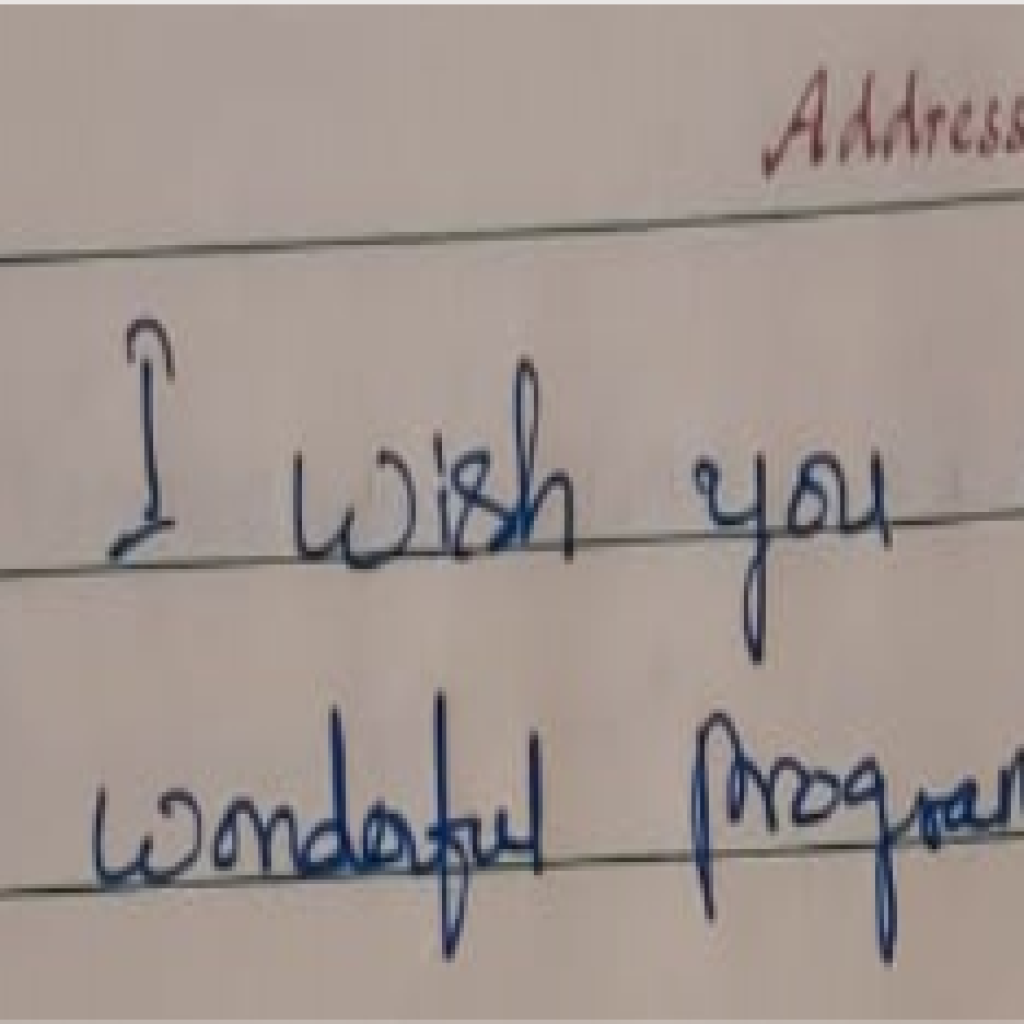 Address
I wish you
wonderful progran